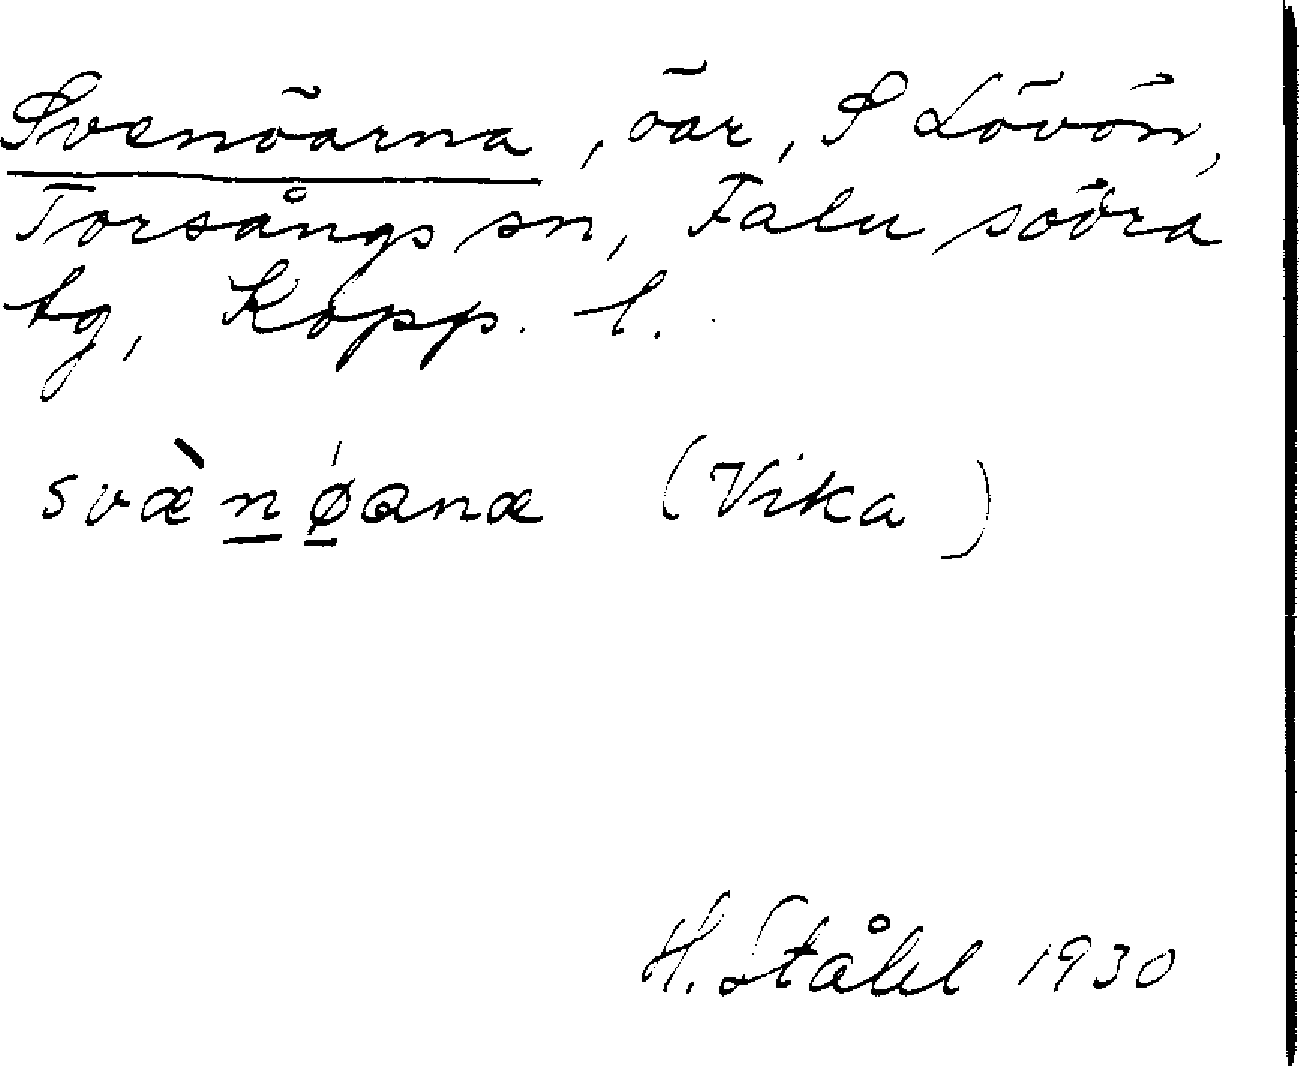 Svenöarna, öar, S Lövön,
Torsångs sn, Falu södra
tg, Kopp. l.
svæ̀n̲ǿ̲ɑnæ (Vika)
H. Ståhl 1930